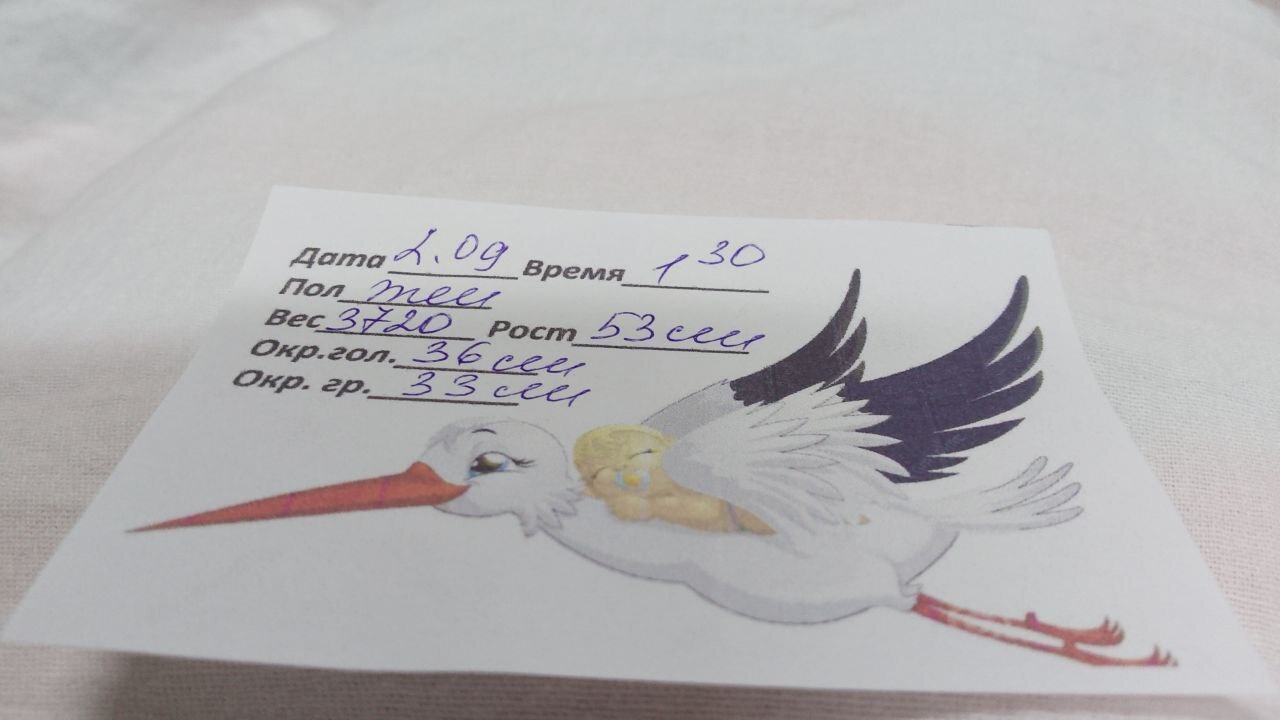 Дата 2.09 Время 1 30
Пол жен
Вес 3720 Рост 53 см
Окр.гол. 36 см
Окр. гр. 33 см